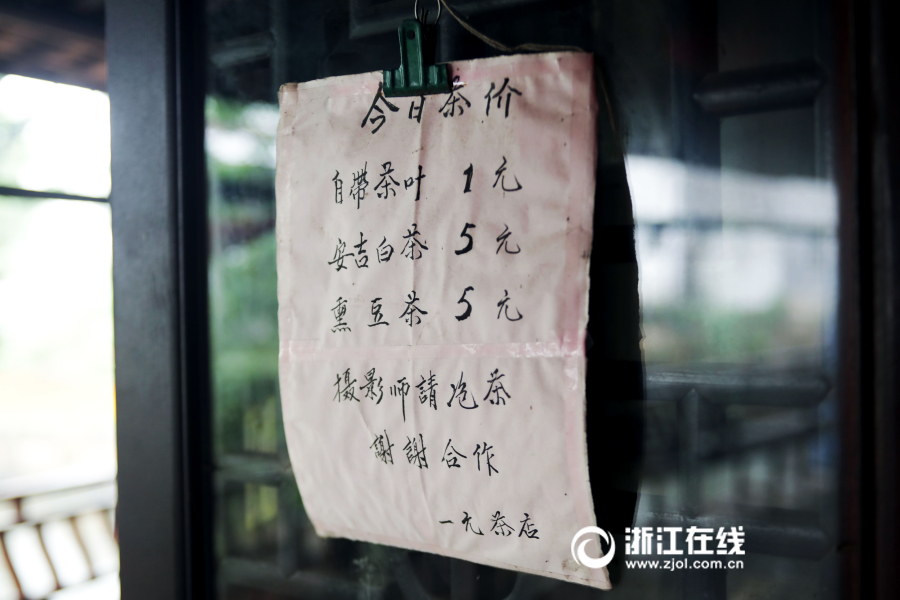 今日茶价
自帶茶叶 1元
安吉白茶 5元
熏豆茶 5元
摄影师請泡茶
謝謝合作
一元茶店
浙江在线
www.zjol.com.cn